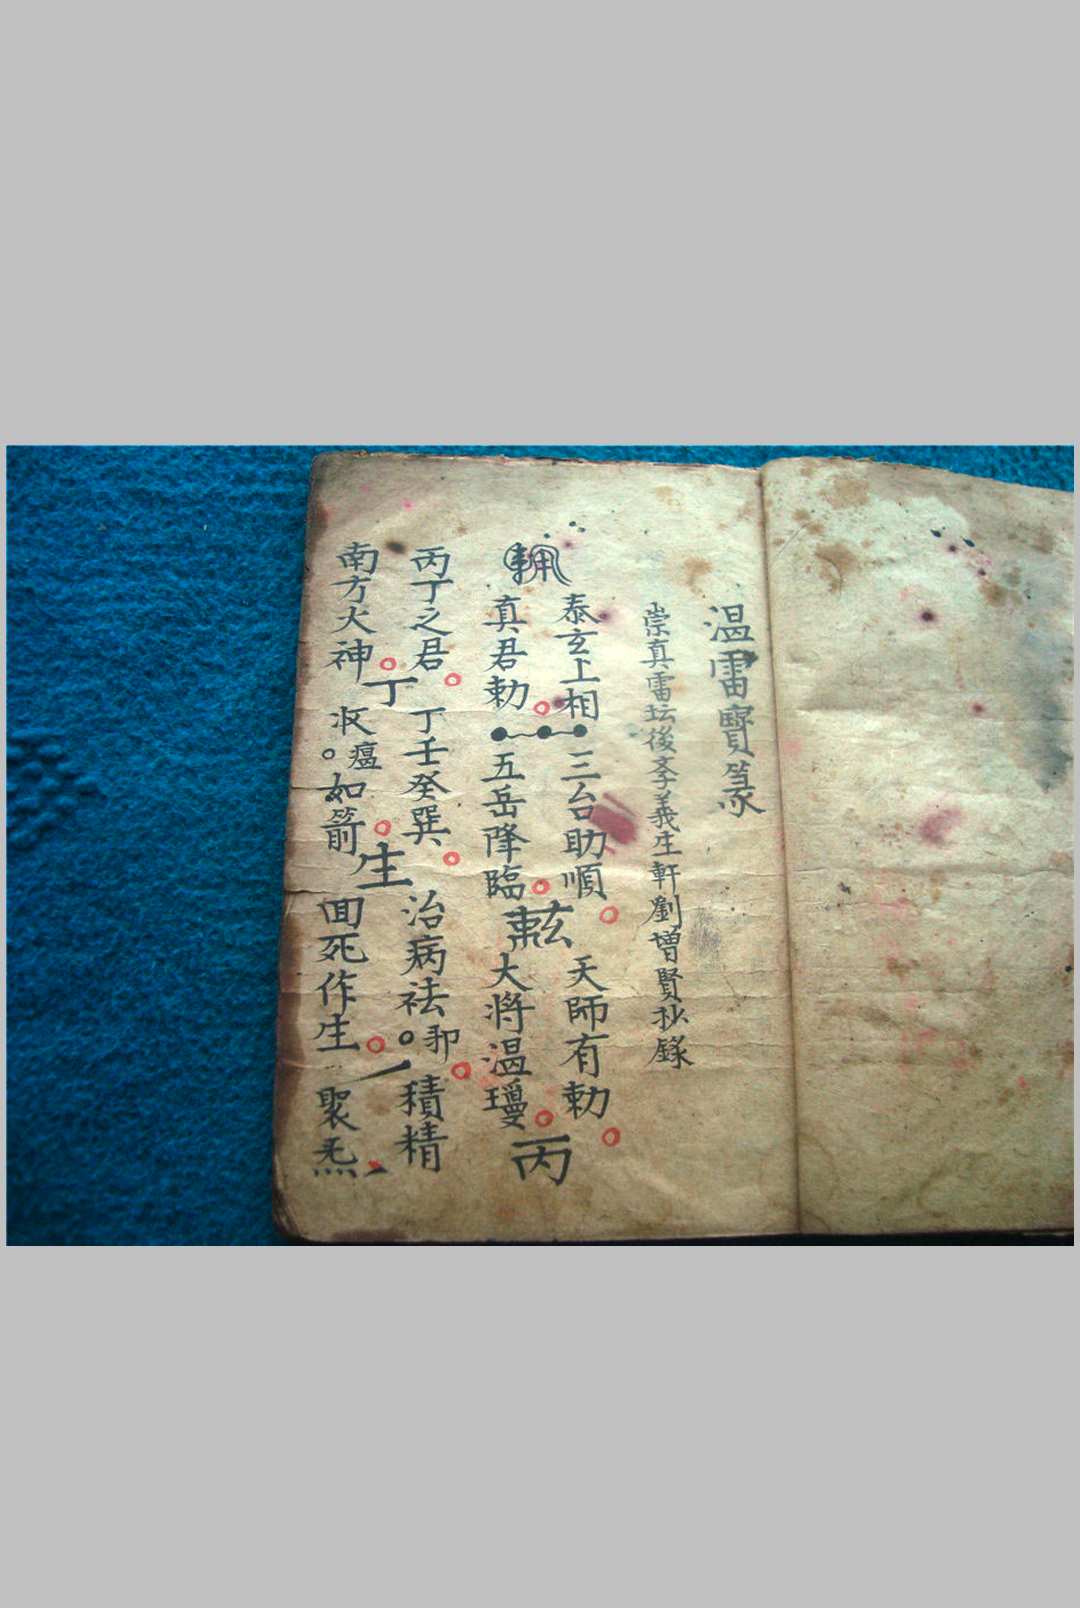 温雷寳篆
崇真雷坛後斈義生軒劉增賢抄錄
泰玄上相
真君勅
三台助順
五岳降臨
天師有勅
大將温瓊
丙
丙丁之君
南方火神
丁
丁壬癸巽
收瘟如箭
生
治病祛邪
回死作生
一
積精
聚炁